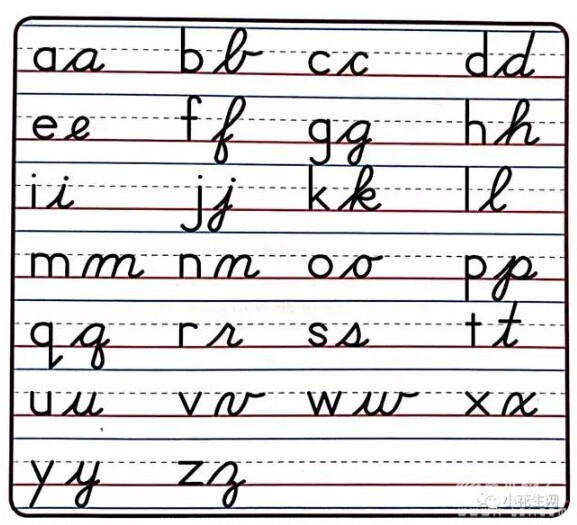 a a b b c c d d
e e f f g g h h
i i j j k k l l
m m n n o o p p
q q r r s s t t
u u v v w w x x
y y z z
小花生网